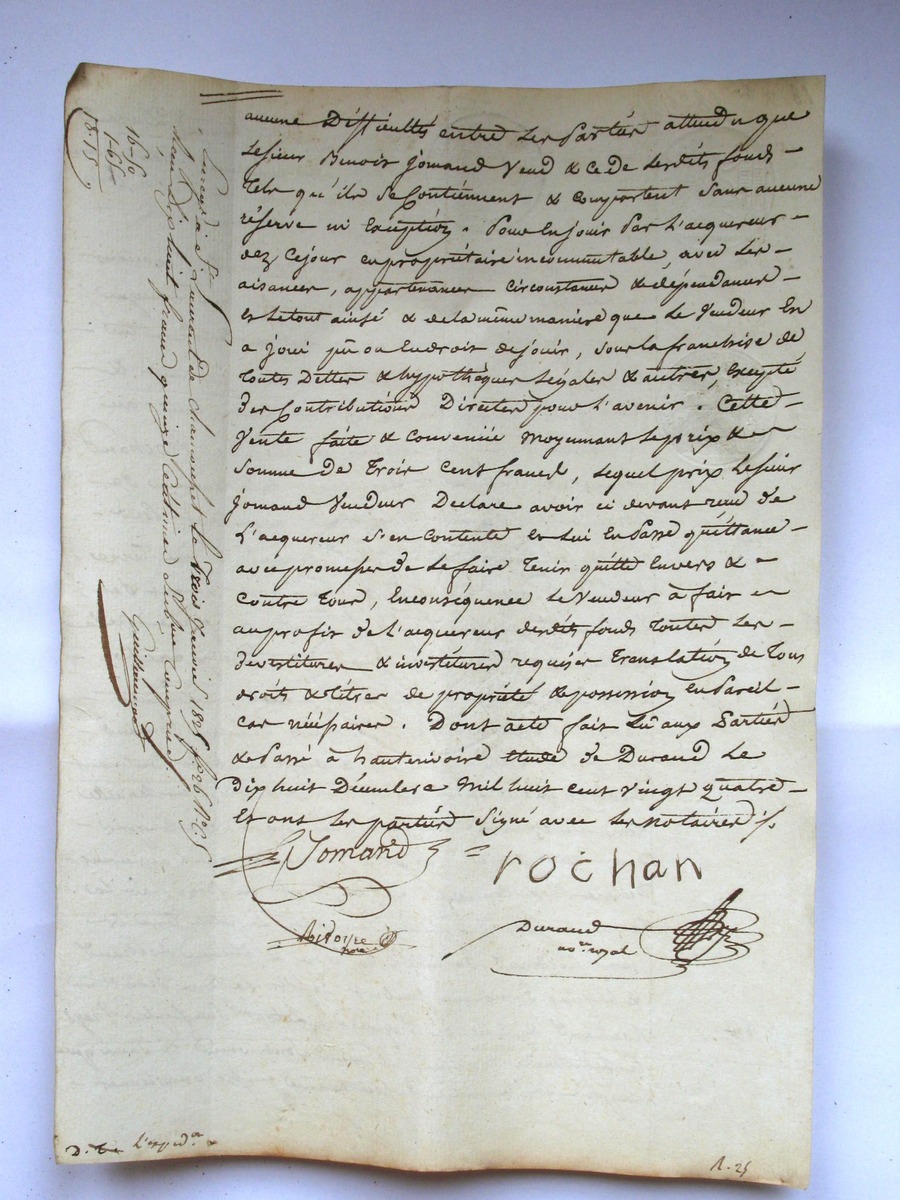 aucune Difficultés entre les Parties attendu que
Le Sieur Benoit Jomand Vend & Cede lesdits fonds
Tels qu'ils se Contiennent & comportent Sans aucune
réserve ni Exception. Pour En jouir Par L'acquereur
dez Cejour en propriétaire incommutable, avec Les
aisances, appartenances circonstances & dépendances
Et le tout ainsé & de la même maniere que Le Vendeur En
a joui pu ou En droit de jouir, sous la franchise de
Toutes Dettes & hypothéques Légales & autres, Excepté
des Contributions Directes pour L'avenir. Cette
Vente faite & Convenüe Moyennant Le prix &
Somme De Trois Cent francs, Lequel prix Le Sieur
Jomand Vendeur Déclare avoir ci devant recu de
L'acquereur s'en contente Et lui En Passe quittance
avec promesse de Le faire Tenir quitte Envers &
Contre Tous, En conséquence Le Vendeur à fait
au profit de L'acquereur desdits fonds Toutes Les
devestitures & investitures requises Translation de Tous
droits & titres de propriété & possession En Pareil
cas nécéssaires. Dont acte fait Lu aux Parties
& Passé à hauterivoire étude de Durand Le
Dix huit Décembre Mil huit cent vingt quatre
Et ont Les parties Signé avec Les notaires ./.
Jomand
rochan
Durand
no.re royal
Enregé à St Laurent de chamousset Le trois janvier 1825 fo 26 Ro C. 5
Reçu dix huit francs quinze Centimes Subv.on Comprise.
16.50
1.65
18.15
L'exped.on
R. 25